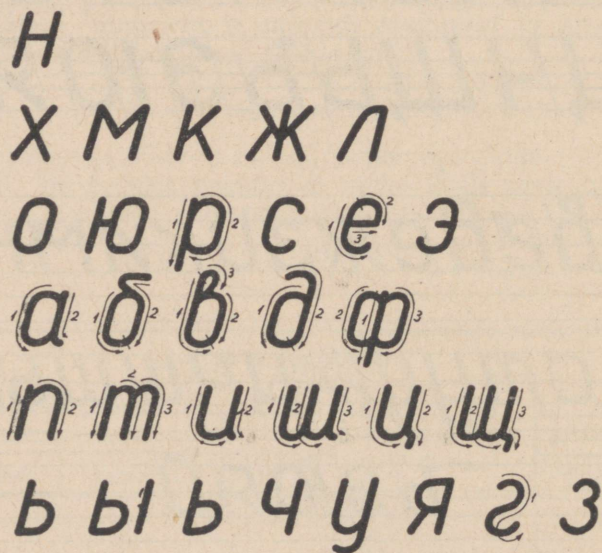 н
х м к ж л
о ю р с е э
а б в д ф
п т и ш ц щ
ь ы ь ч у я г з